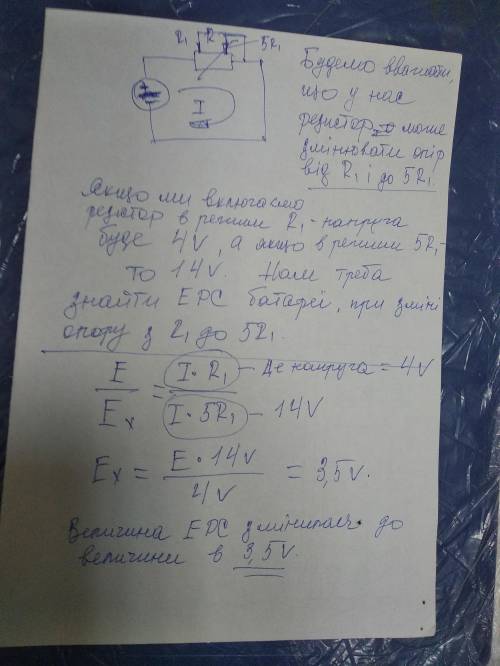 R₁ R 5R₁
I
Будемо вважати,
що у нас
резистор може
змінювати опір
від R₁ і до 5R₁.
Якщо ми включаємо
резистор в режим R₁ - напруга
буде 4V, а якщо в режим 5R₁ -
то 14V. Нам треба
знайти ЕРС батареї, при зміні
опору з R₁ до 5R₁.
E/Eₓ = I·R₁ - Де напруга = 4V / I·5R₁ - 14V
Eₓ = E·14V/4V = 3,5V.
Величина ЕРС змінилась до
величини в 3,5V.